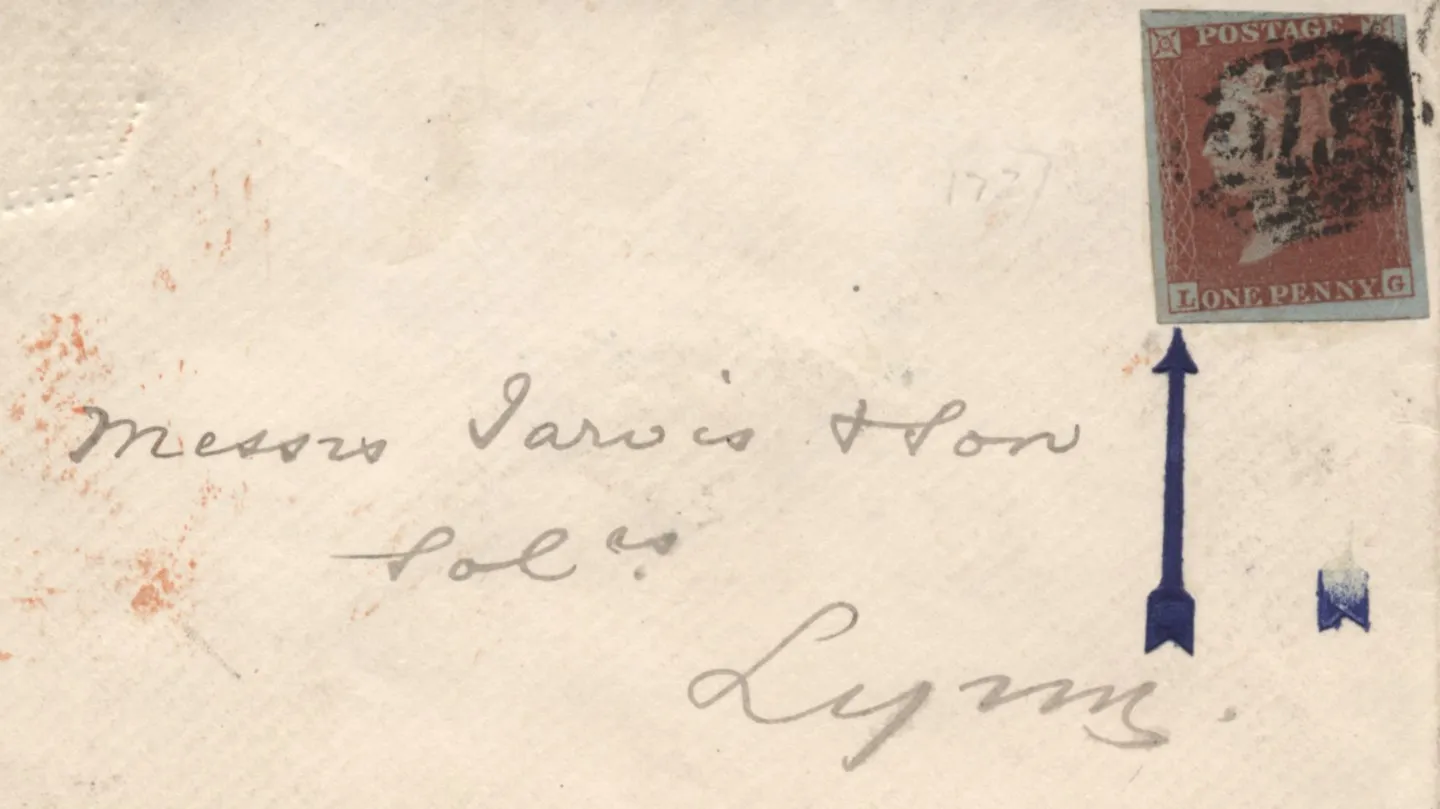 POSTAGE
L ONE PENNY. G
Messrs Jarvis & Son
Solrs
Lynn.